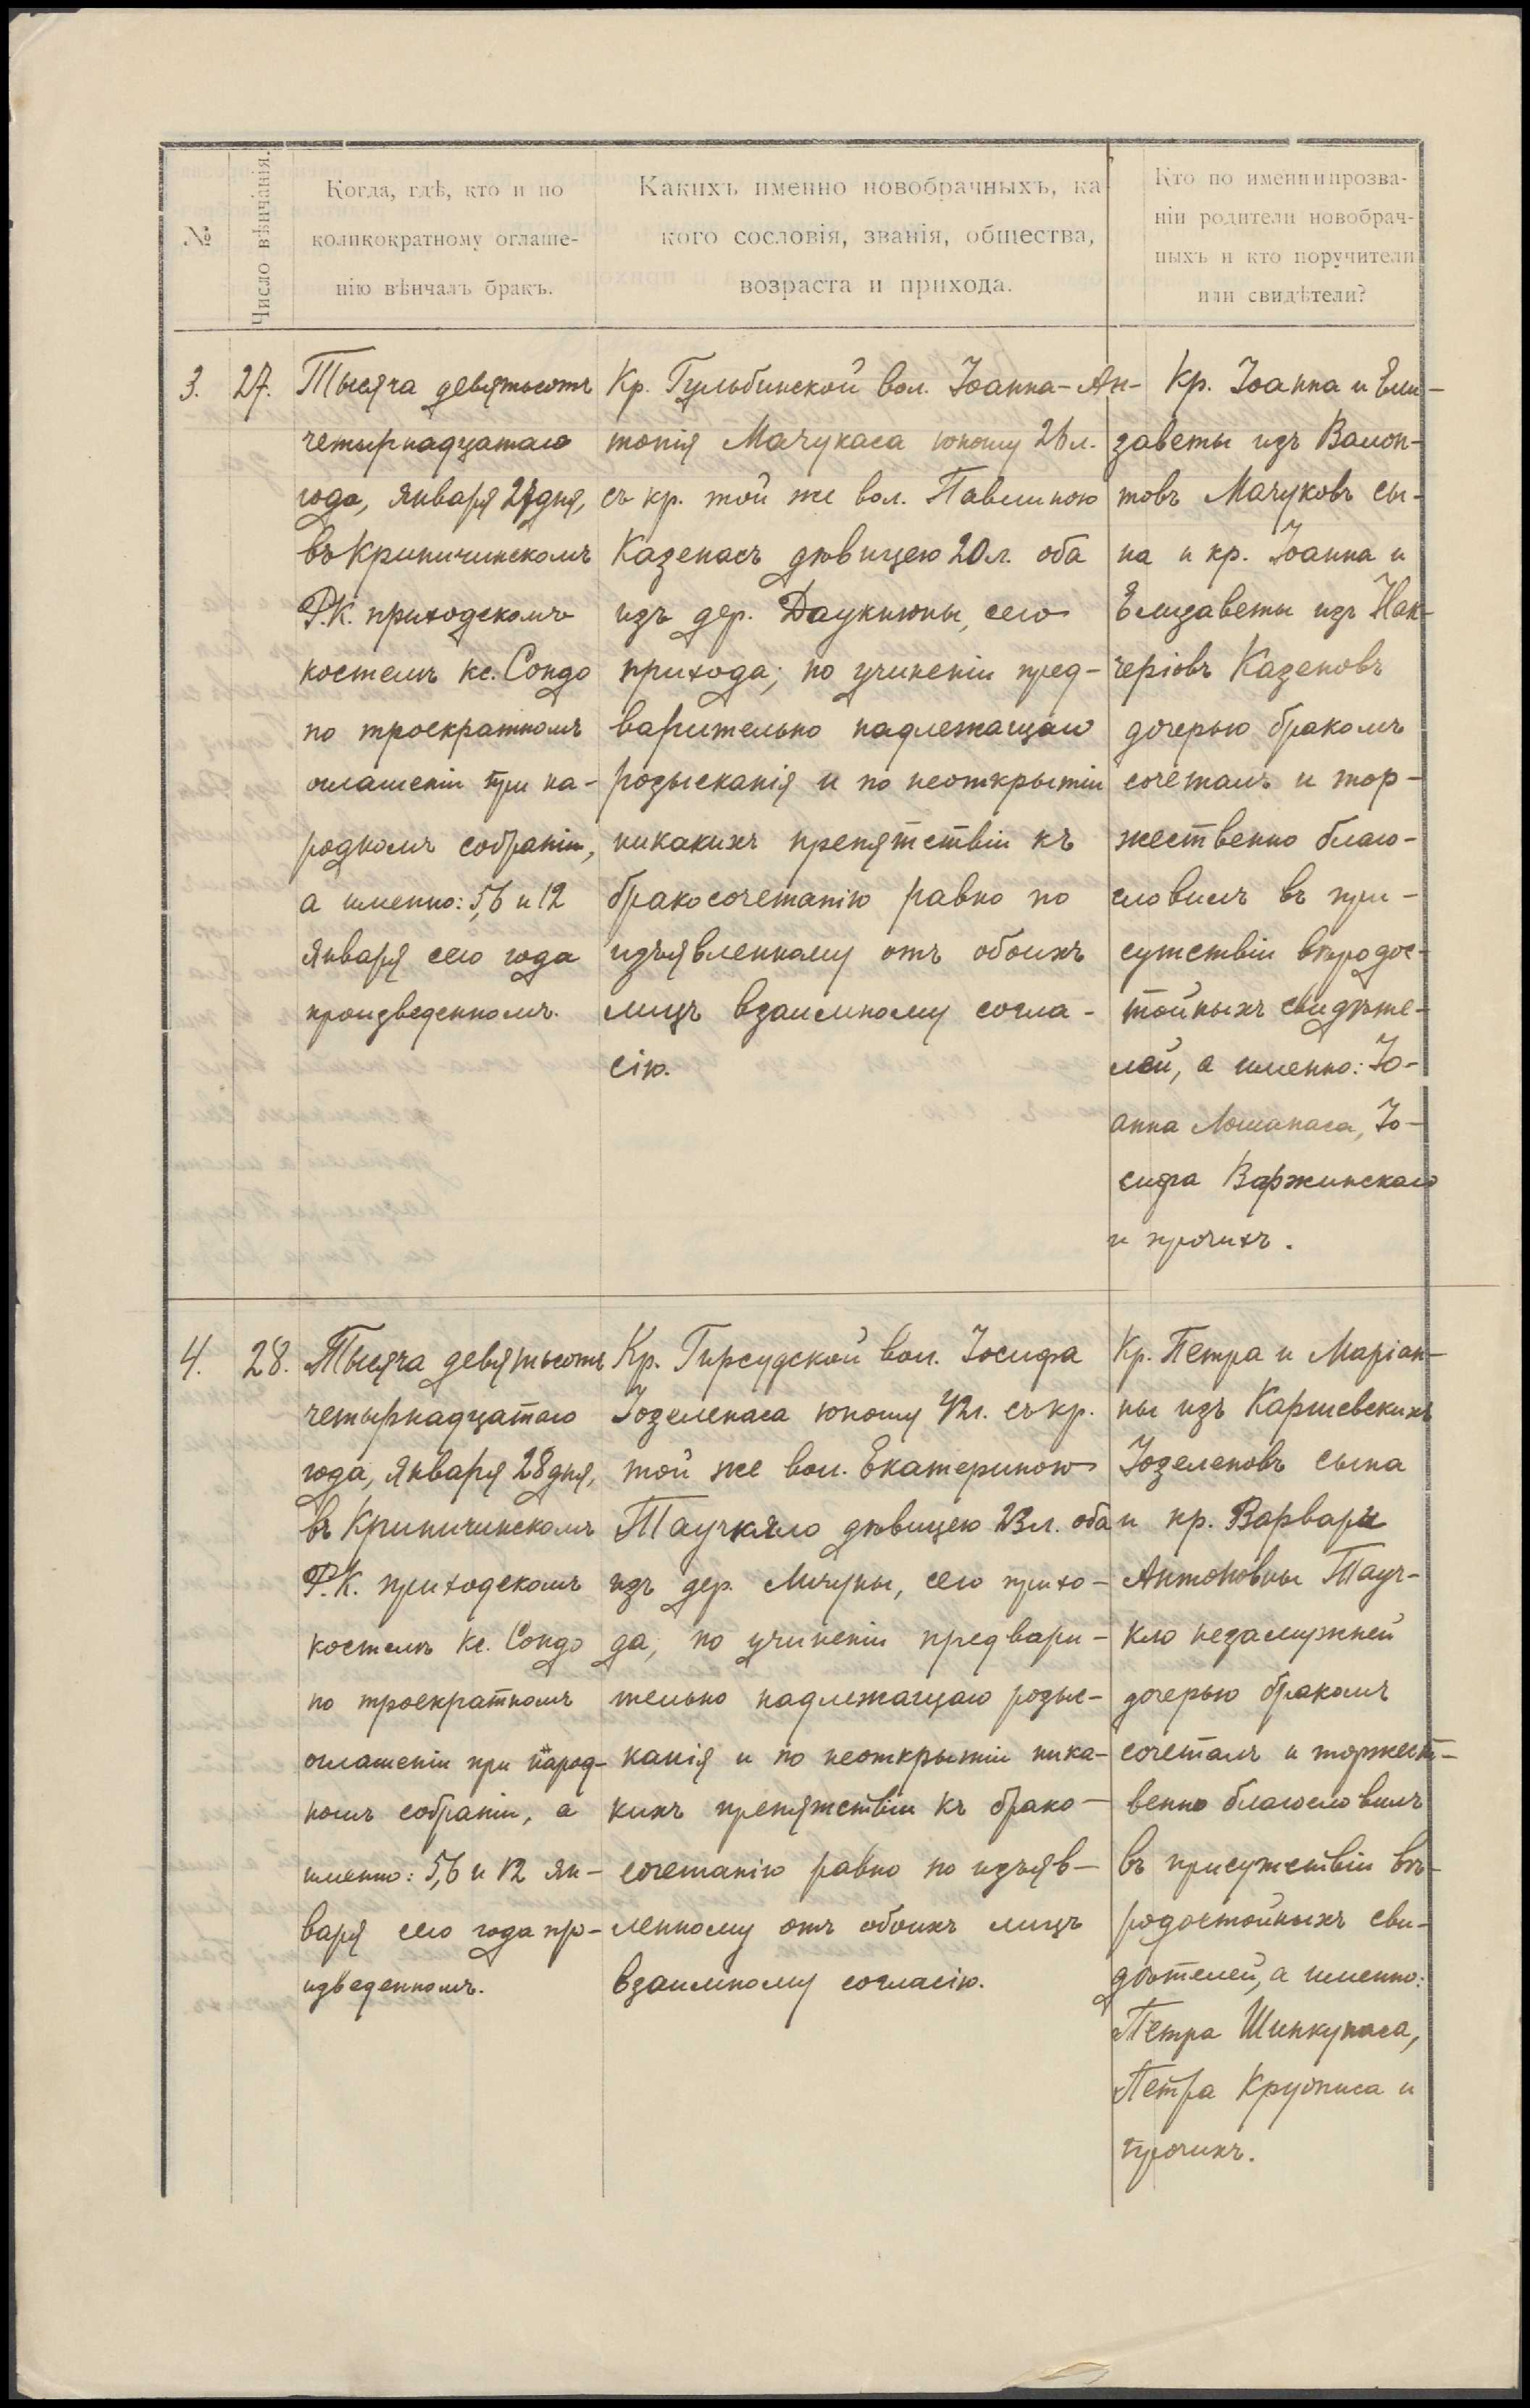 №
Число вѣнчанія.
Когда, гдѣ, кто и по
коликократному оглаше-
нію вѣнчалъ бракъ.
Какихъ именно новобрачныхъ, ка-
кого сословія, званія, общества,
возраста и прихода.
Кто по имени и прозва-
ніи родители новобрач-
ныхъ и кто поручители
или свидѣтели?
3.
27.
Тысяча девятьсотъ
четырнадцатаго
года, января 27 дня,
въ Криничинскомъ
Р.К. приходскомъ
костелѣ кс. Сондо
по троекратномъ
оглашеніи при на-
родномъ собраніи,
а именно: 5, 6 и 12
января сего года
произведенномъ.
Кр. Гульбинской вол. Іоанна-Ан-
тонія Мачукаса юношу 26 л.
съ кр. той же вол. Павлиною
Казенасъ дѣвицею 20 л. оба
изъ дер. Даукнюны, сего
прихода; по учиненіи пред-
варительно надлежащаго
розысканія и по неоткрытіи
никакихъ препятствій къ
бракосочетанію равно по
изъявленному отъ обоихъ
лицъ взаимному согла-
сію.
Кр. Іоанна и Ели-
заветы изъ Валон-
товъ Мачуковъ сы-
на и кр. Іоанна и
Елизаветы изъ Нак-
черіовъ Казеновъ
дочерью бракомъ
сочеталъ и тор-
жественно благо-
словилъ въ при-
сутствіи вѣродос-
тойныхъ свидѣте-
лей, а именно: Іо-
анна Люманаса, Іо-
сифа Варжинскаго
и прочихъ.
4.
28.
Тысяча девятьсотъ
четырнадцатаго
года, января 28 дня,
въ Криничинскомъ
Р.К. приходскомъ
костелѣ кс. Сондо
по троекратномъ
оглашеніи при народ-
номъ собраніи, а
именно: 5, 6 и 12 ян-
варя сего года про-
изведенномъ.
Кр. Гирсудской вол. Іосифа
Іозеленаса юношу 42 г. съ кр.
той же вол. Екатериною
Таучкяло дѣвицею 23 л. оба
изъ дер. Мичуны, сего прихо-
да; по учиненіи предвари-
тельно надлежащаго розыс-
канія и по неоткрытіи ника-
кихъ препятствій къ брако-
сочетанію равно по изъяв-
ленному отъ обоихъ лицъ
взаимному согласію.
Кр. Петра и Маріан-
ны изъ Каршевскихъ
Іозеленовъ сына
и кр. Варвары
Антоновны Тауч-
кло незамужней
дочерью бракомъ
сочеталъ и торжест-
венно благословилъ
въ присутствіи вѣ-
родостойныхъ сви-
дѣтелей, а именно:
Петра Шинкунаса,
Петра Крутписа и
прочихъ.